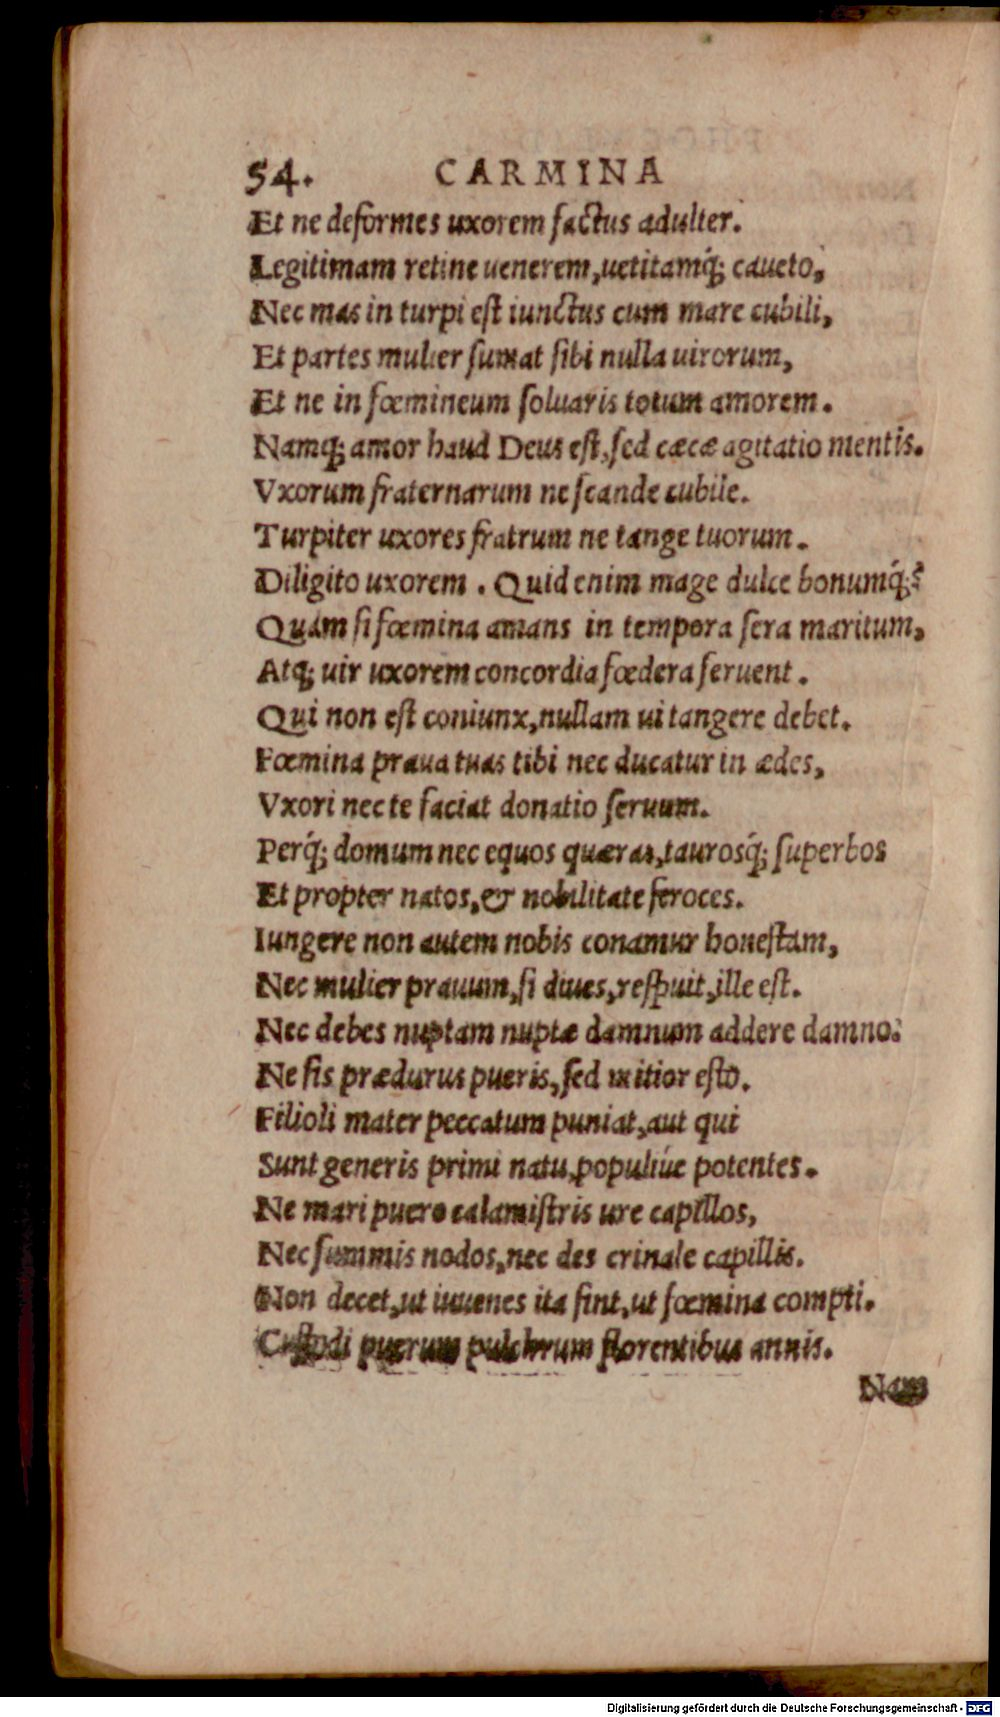 54. CARMINA
Et ne deformes uxorem factus adulter.
Legitimam retine uenerem, uetitamq́; caueto,
Nec mas in turpi est iunctus cum mare cubili,
Et partes mulier sumat sibi nulla uirorum,
Et ne in fœmineum soluaris totum amorem.
Namq; amor haud Deus est, sed cæcæ agitatio mentis.
Vxorum fraternarum ne scande cubile.
Turpiter uxores fratrum ne tange tuorum.
Diligito uxorem. Quid enim mage dulce bonumq́;?
Quàm si fœmina amans in tempora sera maritum,
Atq; uir uxorem concordia fœdera seruent.
Qui non est coniunx, nullam ui tangere debet.
Fœmina praua tuas tibi nec ducatur in ædes,
Vxori nec te faciat donatio seruum.
Perq́; domum nec equos quæras, taurosq́; superbos
Et propter natos, & nobilitate feroces.
Iungere non autem nobis conamur honestam,
Nec mulier prauum, si diues, respuit, ille est.
Nec debes nuptam nuptæ damnum addere damno.
Ne sis prædurus pueris, sed mitior esto.
Filioli mater peccatum puniat, aut qui
Sunt generis primi natu, populiúe potentes.
Ne mari puero calamistris ure capillos,
Nec summis nodos, nec des crinale capillis.
Non decet, ut iuuenes ita sint, ut fœmina compti.
Custodi puerum pulchrum florentibus annis.
Nam
Digitalisierung gefördert durch die Deutsche Forschungsgemeinschaft - DFG